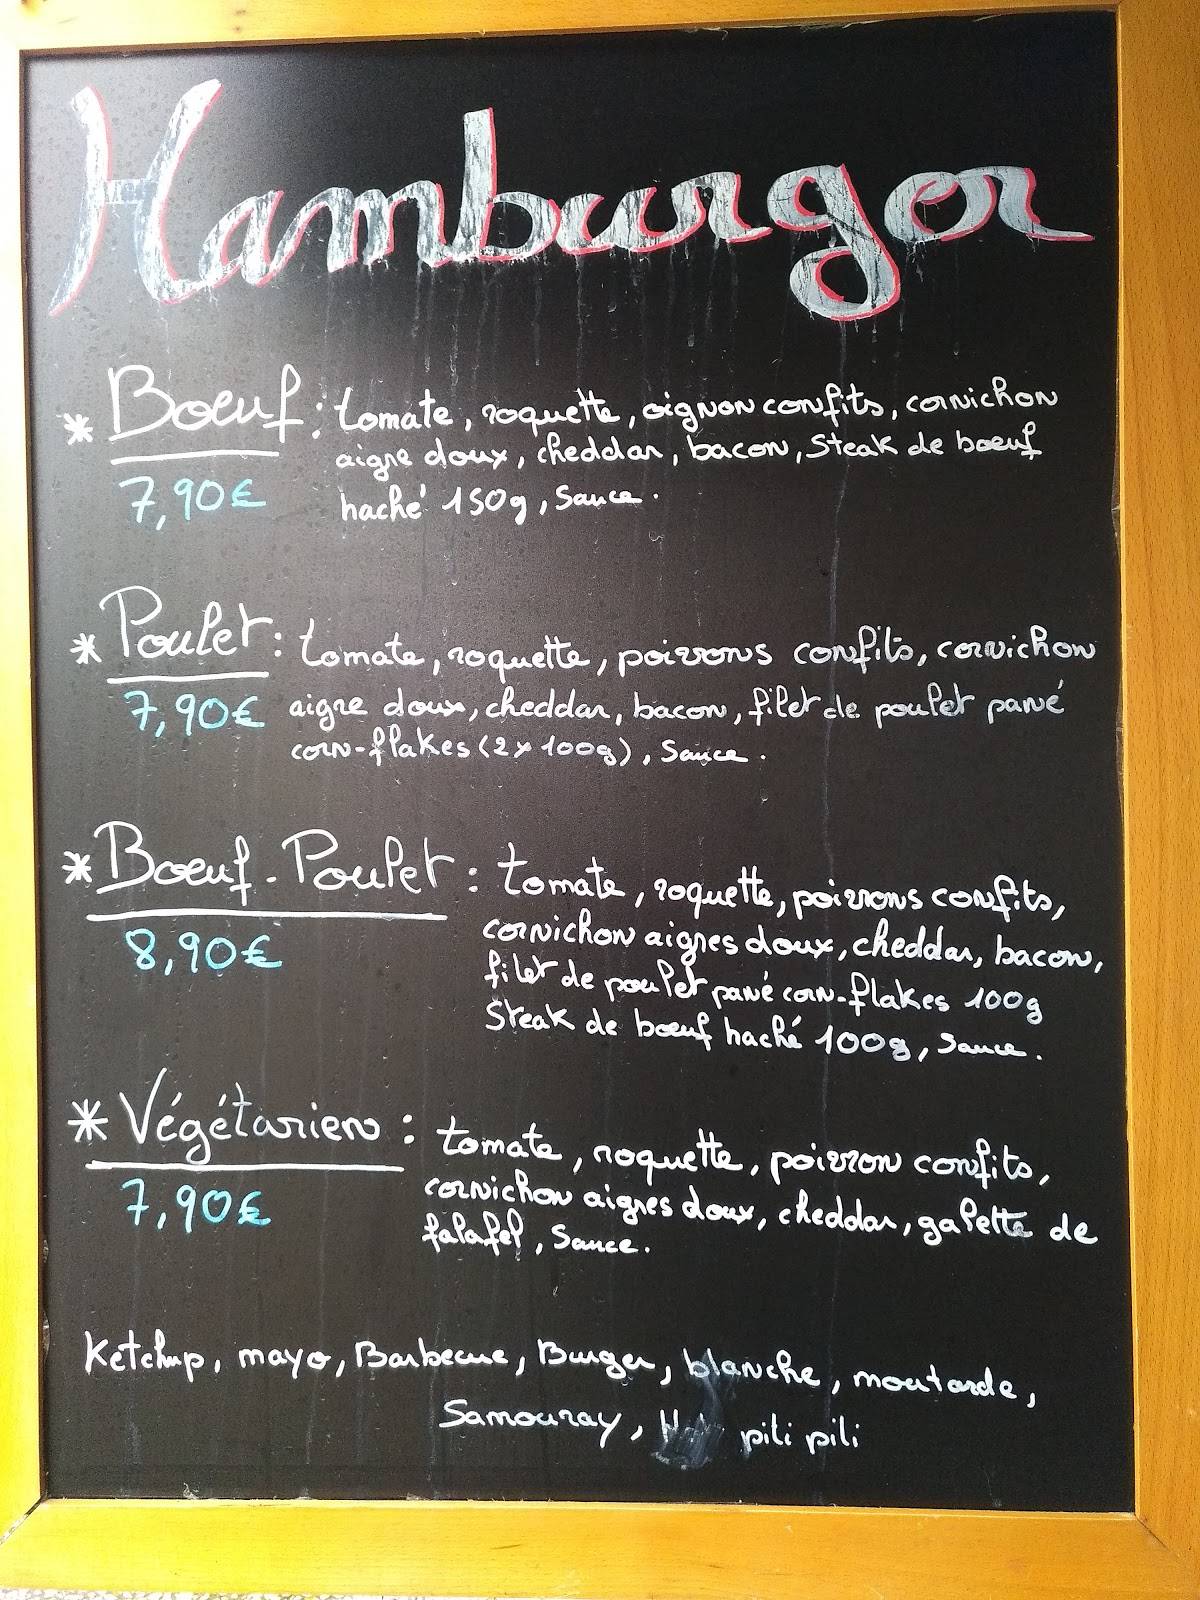 Hamburger
* Boeuf : tomate, roquette, oignon confits, cornichon
aigre doux, cheddar, bacon, Steak de boeuf
7,90€ haché 150g, Sauce.
* Poulet : tomate, roquette, poivrons confits, cornichon
7,90€ aigre doux, cheddar, bacon, filet de poulet pané
corn-flakes (2 x 100g), Sauce.
* Boeuf-Poulet : tomate, roquette, poivrons confits,
8,90€ cornichon aigres doux, cheddar, bacon,
filet de poulet pané corn-flakes 100g
Steak de boeuf haché 100g, Sauce.
* Végétarien : tomate, roquette, poivron confits,
7,90€ cornichon aigres doux, cheddar, galette de
falafel, Sauce.
Ketchup, mayo, Barbecue, Burger, blanche, moutarde,
Samouray, pili pili